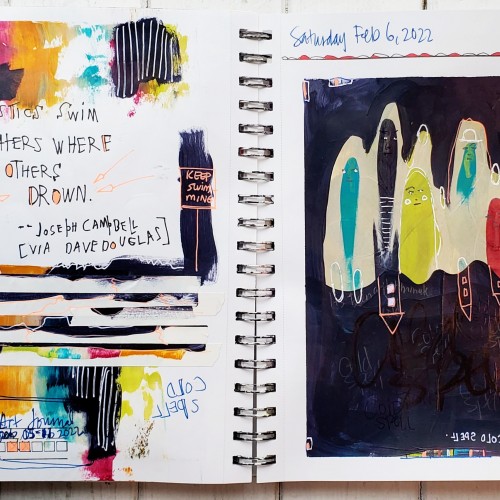 STICS SWIM
HERS WHERE
OTHERS
DROWN.
--JOSEPH CAMPBELL
[VIA DAVE DOUGLAS]
KEEP
SWIM
MING
COLD
SPELL
Art Journal
Saturday Feb 6, 2022
COLD SPELL.